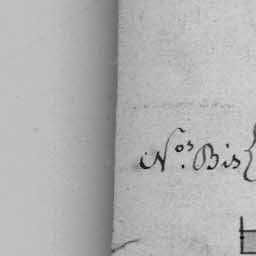 N.os Bis {